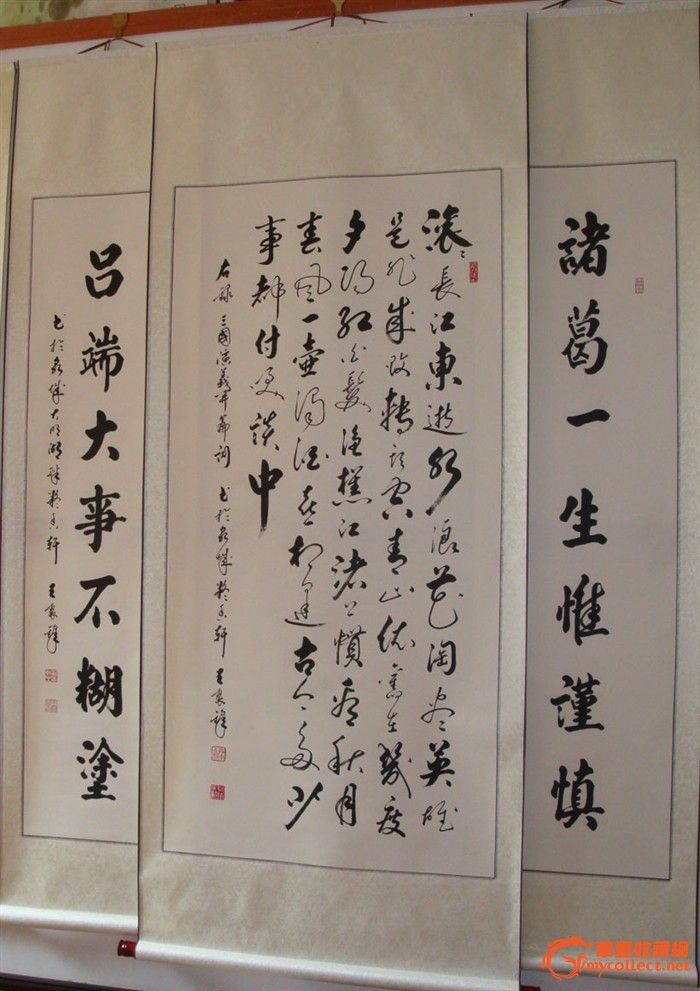 諸葛一生惟謹慎
滚〻長江東逝水浪花淘盡英雄
是非成敗轉頭空青山依舊在幾度
夕陽紅白髮漁樵江渚上慣看秋月
春風一壺濁酒喜相逢古今多少
事都付笑談中
右録三國演義開篇詞 书於泉城軒 王
吕端大事不糊塗
书於泉城大明湖畔軒 王
華夏收藏網
mycollect.net